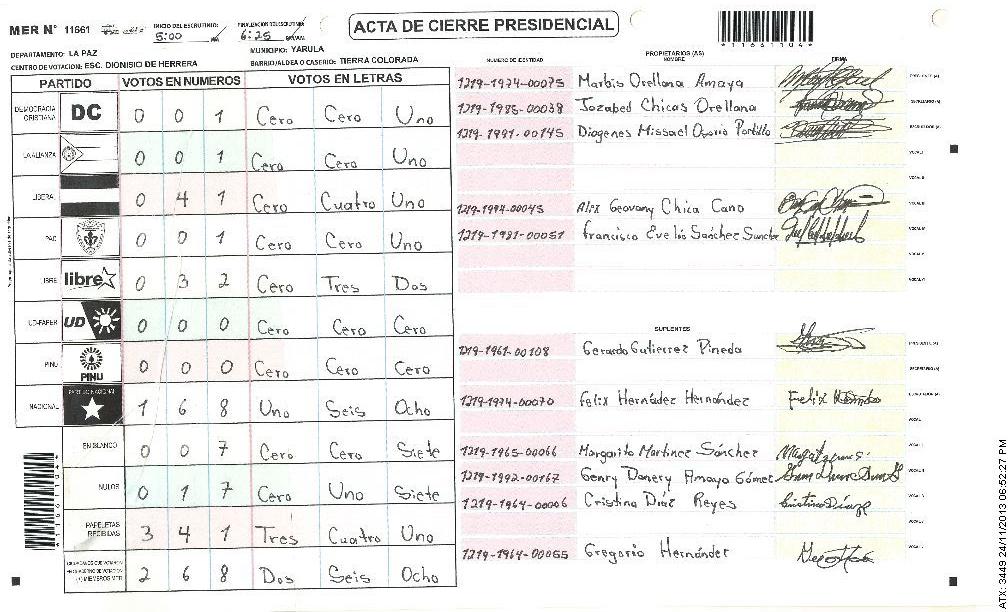 ACTA DE CIERRE PRESIDENCIAL
MER N° 11661
INICIO DEL ESCRUTINIO: 5:00
FINALIZACION DEL ESCRUTINIO: 6:25
*11661104*
DEPARTAMENTO: LA PAZ
MUNICIPIO: YARULA
CENTRO DE VOTACION: ESC. DIONISIO DE HERRERA
BARRIO/ALDEA O CASERIO: TIERRA COLORADA
PARTIDO VOTOS EN NUMEROS VOTOS EN LETRAS
DEMOCRACIA CRISTIANA DC 0 0 1 Cero Cero Uno
LA ALIANZA 0 0 1 Cero Cero Uno
LIBERAL 0 4 1 Cero Cuatro Uno
PAC 0 0 1 Cero Cero Uno
LIBRE libre 0 3 2 Cero Tres Dos
UD-FAPER UD 0 0 0 Cero Cero Cero
PINU PINU 0 0 0 Cero Cero Cero
NACIONAL PARTIDO NACIONAL 1 6 8 Uno Seis Ocho
EN BLANCO 0 0 7 Cero Cero Siete
NULOS 0 1 7 Cero Uno Siete
PAPELETAS RECIBIDAS 3 4 1 Tres Cuatro Uno
2 6 8 Dos Seis Ocho
*11661104*
NUMERO DE IDENTIDAD PROPIETARIOS (AS) NOMBRE FIRMA
1219-1974-00075 Marbis Orellana Amaya
1219-1985-00038 Jozabed Chicas Orellana
1219-1991-00145 Diogenes Missael Osorio Portillo
1219-1994-00045 Alix Geovany Chica Cano
1219-1981-00051 Francisco Evelio Sánchez Sanche
SUPLENTES
1219-1961-00108 Gerardo Gutierrez Pineda
1219-1974-00070 Felix Hernádez Hernández
1219-1965-00066 Margarito Martinez Sánchez
1219-1992-00167 Genry Danery Amaya Gómez
1219-1964-00006 Cristina Díaz Reyes
1219-1964-00055 Gregorio Hernández
ATX: 3449 24/11/2013 06:52:27 PM